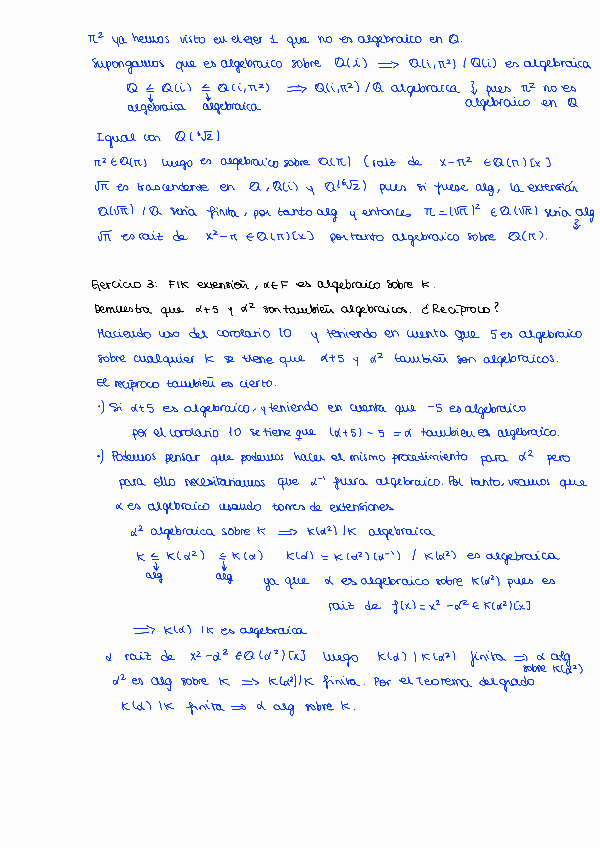 π² ya hemos visto en el ejer 1 que no es algebraico en Q.
Supongamos que es algebraico sobre Q(i) ⟹ Q(i,π²) / Q(i) es algebraica
Q ≤ Q(i) ≤ Q(i,π²) ⟹ Q(i,π²) / Q algebraica ↯ pues π² no es
algebraica algebraica algebraico en Q
Igual con Q(⁶√2)
π² ∈ Q(π) luego es algebraico sobre Q(π) (raiz de x-π² ∈ Q(π)[x]
√π es trascendente en Q, Q(i) y Q(⁶√2) pues si fuese alg, la extensión
Q(√π) / Q sería finita, por tanto alg y entonces π = (√π)² ∈ Q(√π) sería alg ↯
√π es raiz de x²-π ∈ Q(π)[x] por tanto algebraico sobre Q(π).
Ejercicio 3: F|K extensión, α∈F es algebraico sobre K.
Demuestra que α+5 y α² son también algebraicos. ¿Recíproco?
Haciendo uso del corolario 10 y teniendo en cuenta que 5 es algebraico
sobre cualquier K se tiene que α+5 y α² también son algebraicos.
El recíproco también es cierto.
·) Si α+5 es algebraico, y teniendo en cuenta que -5 es algebraico
por el corolario 10 se tiene que (α+5)-5 = α también es algebraico.
·) Podemos pensar que podemos hacer el mismo procedimiento para α² pero
para ello necesitaríamos que α⁻¹ fuera algebraico. Por tanto, veamos que
α es algebraico usando torres de extensiones
α² algebraica sobre K ⟹ K(α²)/K algebraica
K ≤ K(α²) ≤ K(α) K(α) = K(α²)(α⁻¹) / K(α²) es algebraica
alg alg ya que α es algebraico sobre K(α²) pues es
raiz de f(x) = x²-α² ∈ K(α²)[x]
⟹ K(α) |K es algebraica
α raiz de x²-α² ∈ Q(α²)[x] luego K(α) | K(α²) finita ⟹ α alg
sobre K(α²)
α² es alg sobre K ⟹ K(α²)/K finita. Por el Teorema del grado
K(α) |K finita ⟹ α alg sobre K.